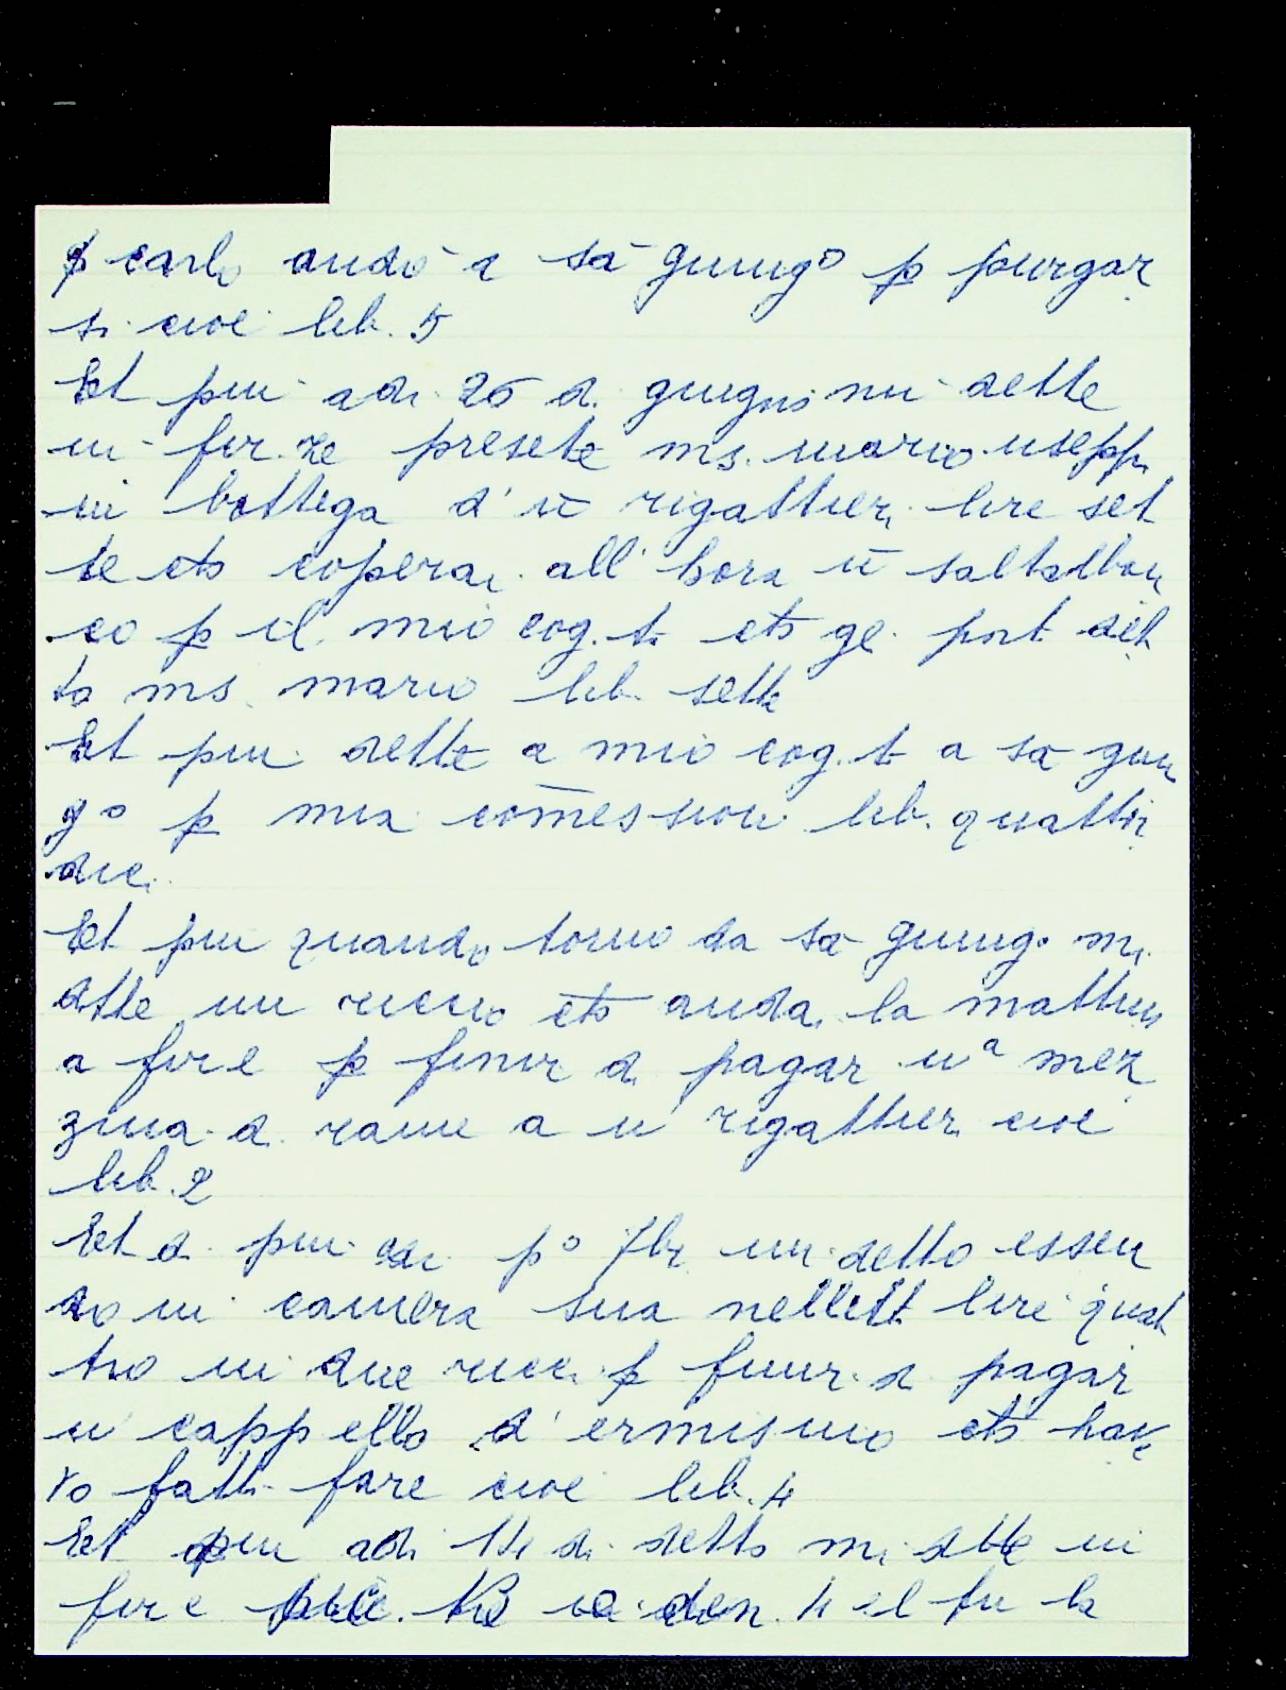 p carlo andò a sā giung° p purgar
si cioè lib. 5
Et piu adi 26 di giugno mi dette
in fir.ze presēte ms. mario useppi
in bottega d'ū rigattieri lire set
te ch coperai all'hora ū saltalbar
co p il mio cog.to ch ge port det
to ms. mario lib. sette
Et piu dette a mio cog.to a sā giun
g° p mia comēssioni lib. quattir
dici
Et piu quando torno da sā giung° mi
dtte un riccio ch andai la mattin
a fire p finir di pagar uª mez
zina di rame a u rigattier cioè
lib. 2
Et di piu adi p° 7br mi detto essen
do in camera sua nellett lire quat
tro in due ricci p finir di pagar
u cappello d'ermisino ch have
vo fatto fare cioè lib. 4
Et piu adi 14 di detto mi dtte in
fire den. 4 el fu la